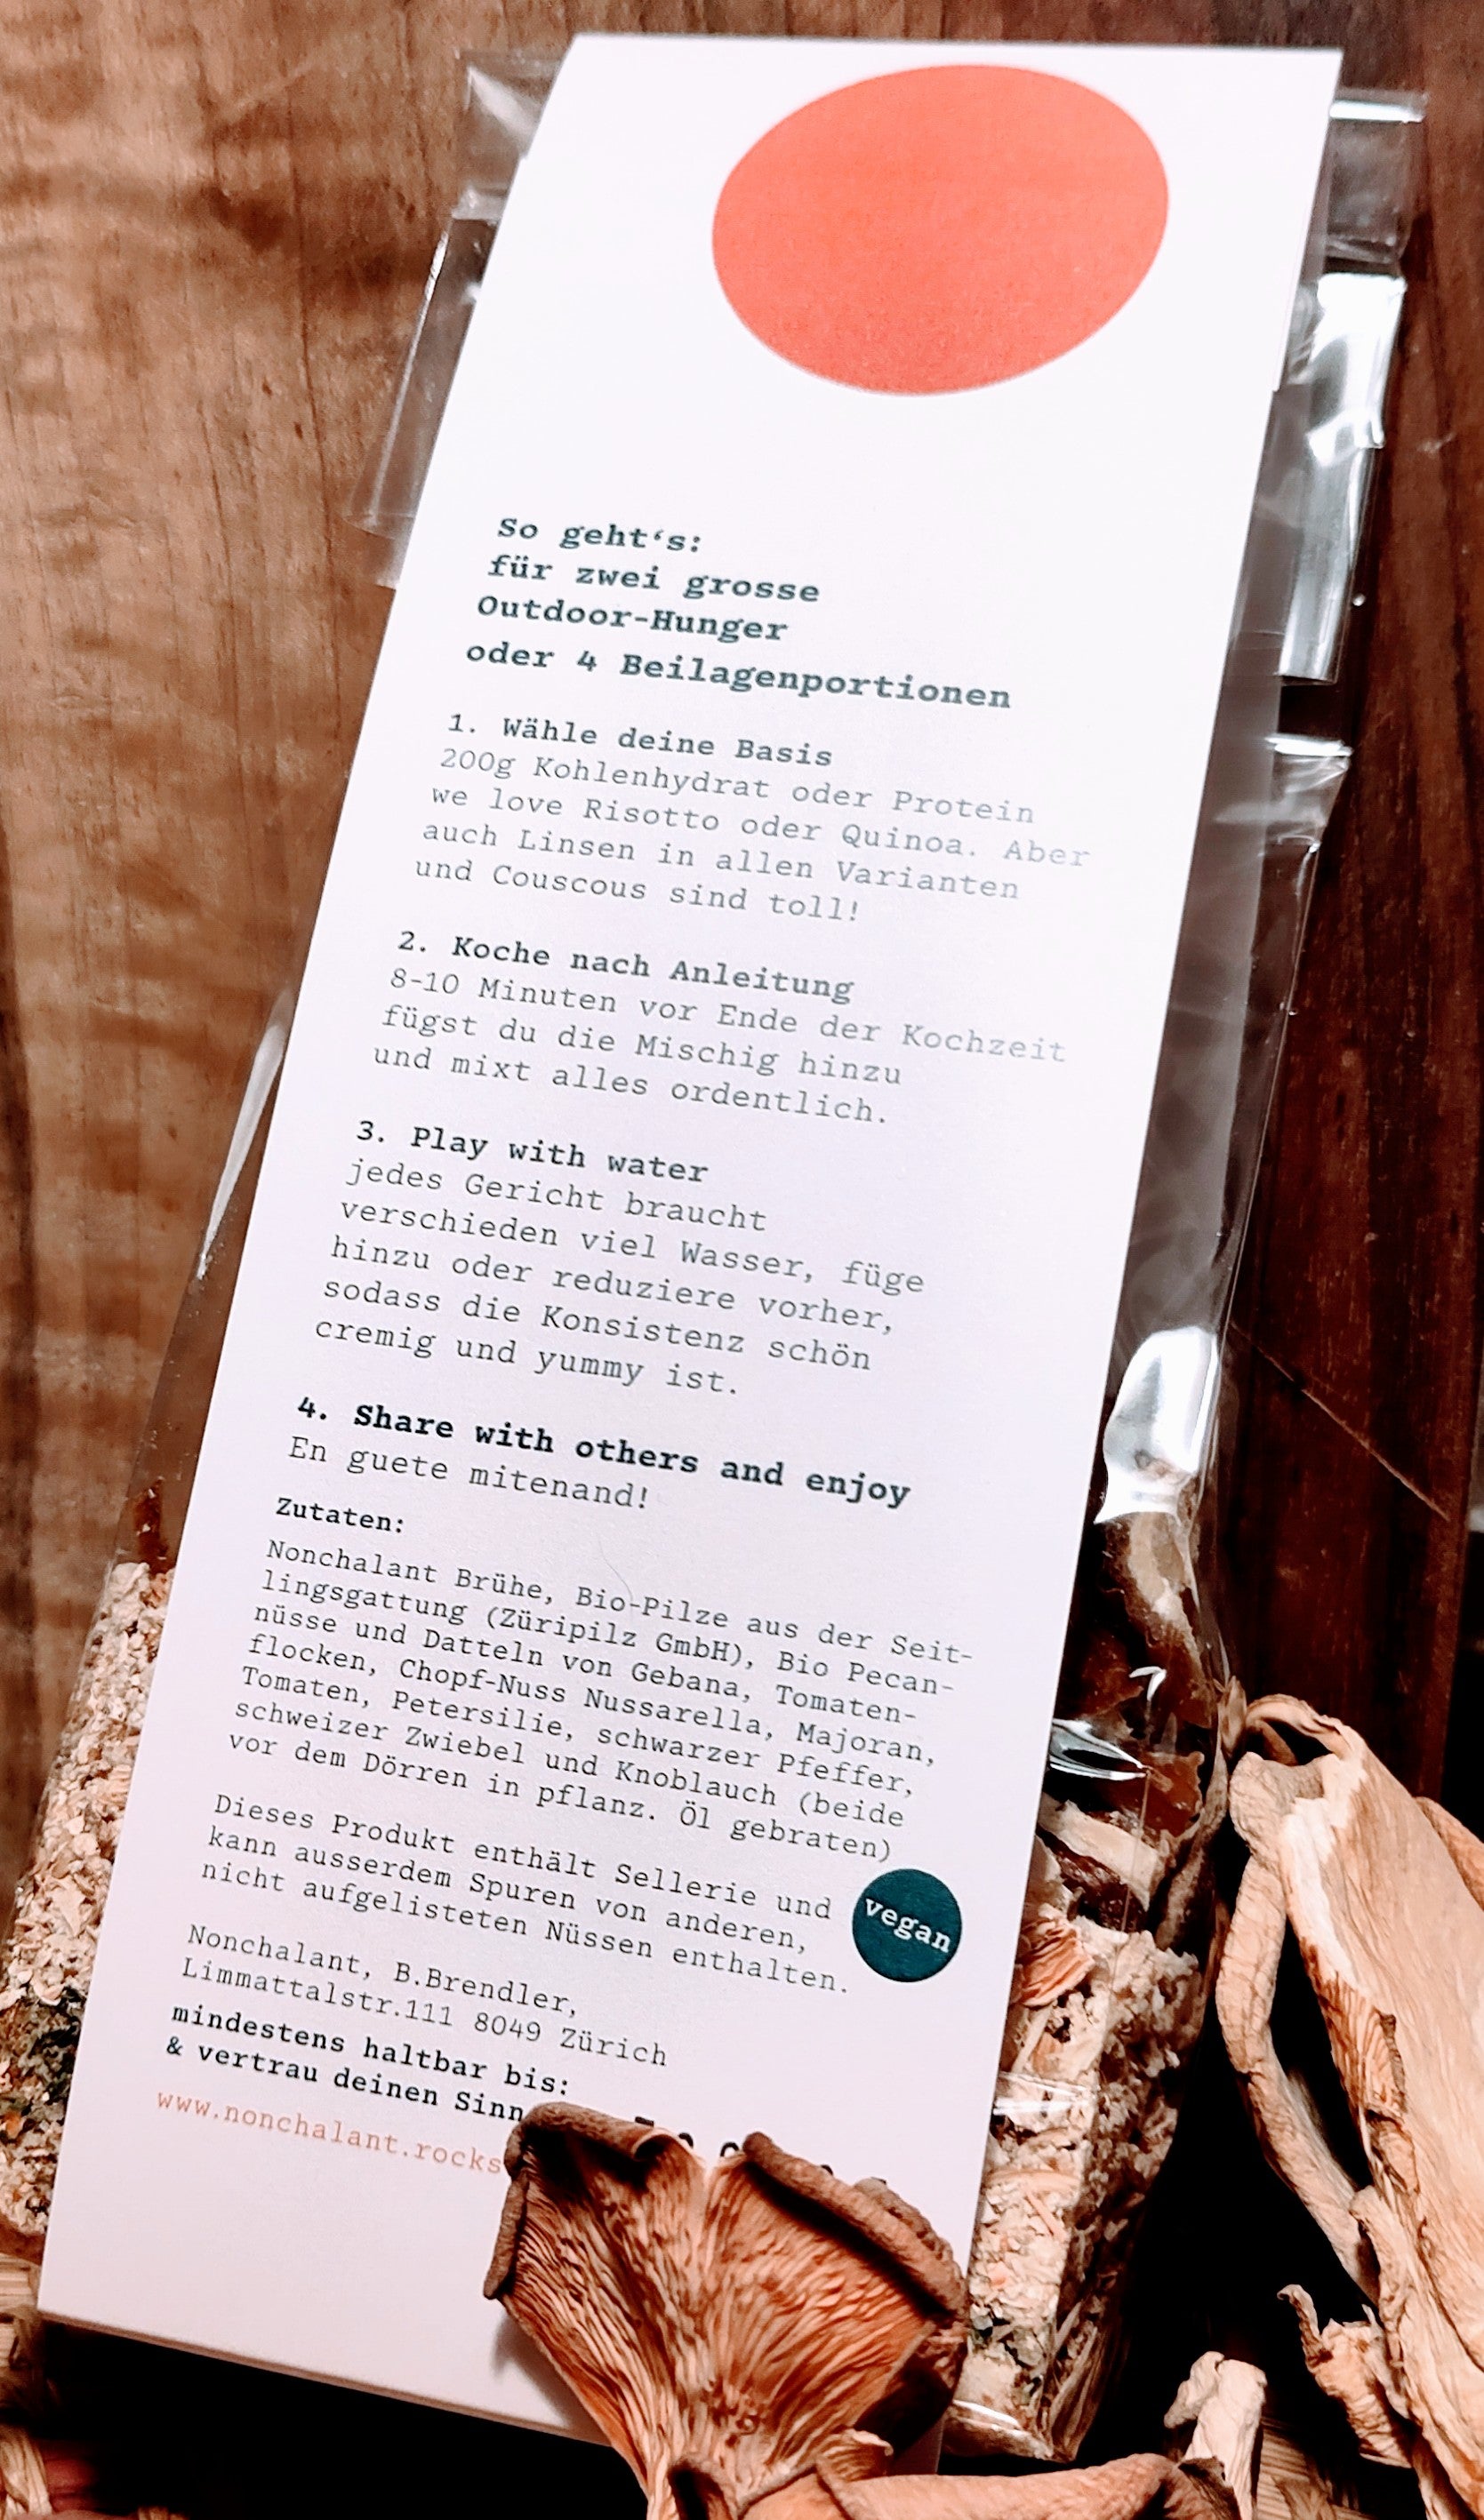 So geht‘s:
für zwei grosse
Outdoor-Hunger
oder 4 Beilagenportionen
1. Wähle deine Basis
200g Kohlenhydrat oder Protein
we love Risotto oder Quinoa. Aber
auch Linsen in allen Varianten
und Couscous sind toll!
2. Koche nach Anleitung
8-10 Minuten vor Ende der Kochzeit
fügst du die Mischig hinzu
und mixt alles ordentlich.
3. Play with water
jedes Gericht braucht
verschieden viel Wasser, füge
hinzu oder reduziere vorher,
sodass die Konsistenz schön
cremig und yummy ist.
4. Share with others and enjoy
En guete mitenand!
Zutaten:
Nonchalant Brühe, Bio-Pilze aus der Seit-
lingsgattung (Züripilz GmbH), Bio Pecan-
nüsse und Datteln von Gebana, Tomaten-
flocken, Chopf-Nuss Nussarella, Majoran,
Tomaten, Petersilie, schwarzer Pfeffer,
schweizer Zwiebel und Knoblauch (beide
vor dem Dörren in pflanz. Öl gebraten)
Dieses Produkt enthält Sellerie und
kann ausserdem Spuren von anderen,
nicht aufgelisteten Nüssen enthalten.
vegan
Nonchalant, B.Brendler,
Limmattalstr.111 8049 Zürich
mindestens haltbar bis:
& vertrau deinen
www.nonchalant.rocks